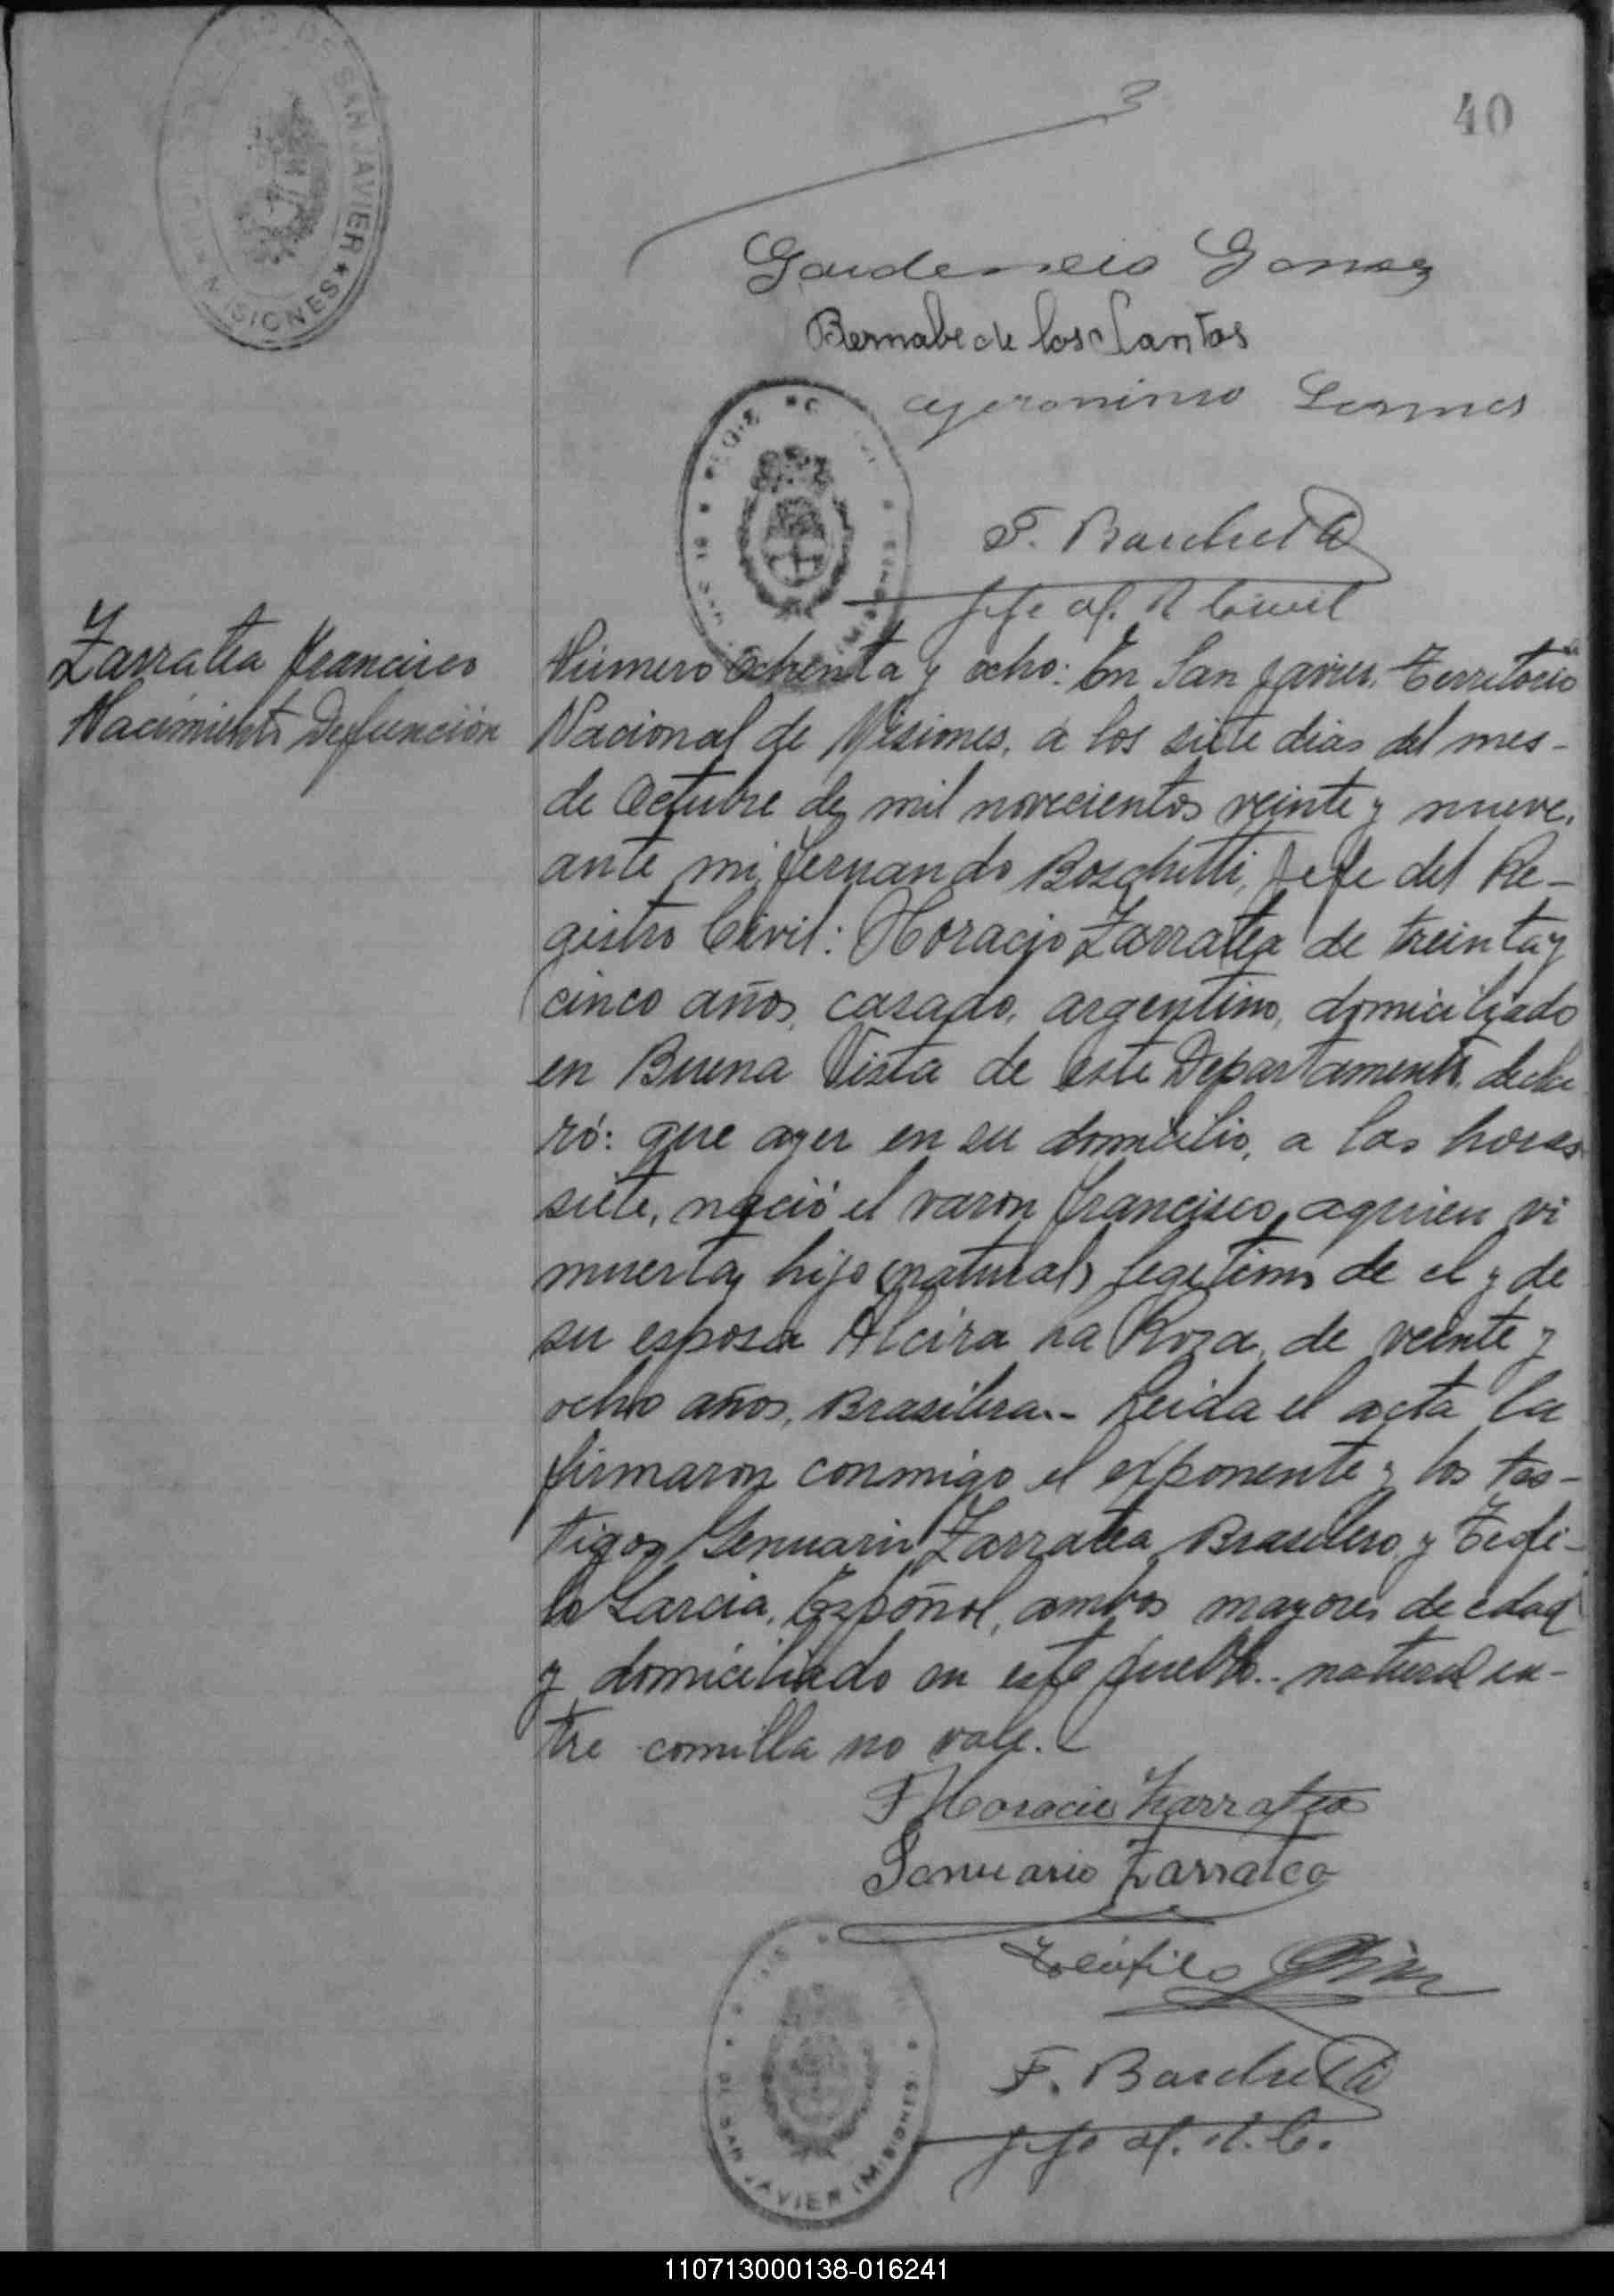 DE SAN JAVIER ★ MISIONES ★
40
Gaudencio Gomez
Bernabe de los Santos
Geronimo Lemes
F. Boschetti
Jefe of. R Civil
Zarratea Francisco
Nacimiento Defunción
Número Ochenta y ocho: En San Javier, Territorio
Nacional de Misiones, a los siete dias del mes-
de Octubre de mil novecientos veinte y nueve,
ante mi Fernando Boschetti, Jefe del Re-
gistro Civil: Horacio Zarratea de treinta y
cinco años, casado, argentino, domiciliado
en Buena Vista de este Departamento, decla
ró: que ayer en su domicilio, a las horas
siete, nació el varon Francisco, aquien vi
muerto, hijo (natural) legitimo de el y de
su esposa Alcira La Roza, de veinte y
ocho años, Brasilera.- Leida el acta la
firmaron conmigo el exponente y los tes-
tigos Genuario Zarratea Brasilero y Teofi-
lo Garcia, Español, ambos mayores de edad
y domiciliado en este pueblo.. natural en-
tre comilla no vale.
Horacio Zarratea
Genuario Zarratea
Teófilo
F. Boschetti
Jefe of. R. C.
DE SAN JAVIER (MISIONES)
110713000138-016241